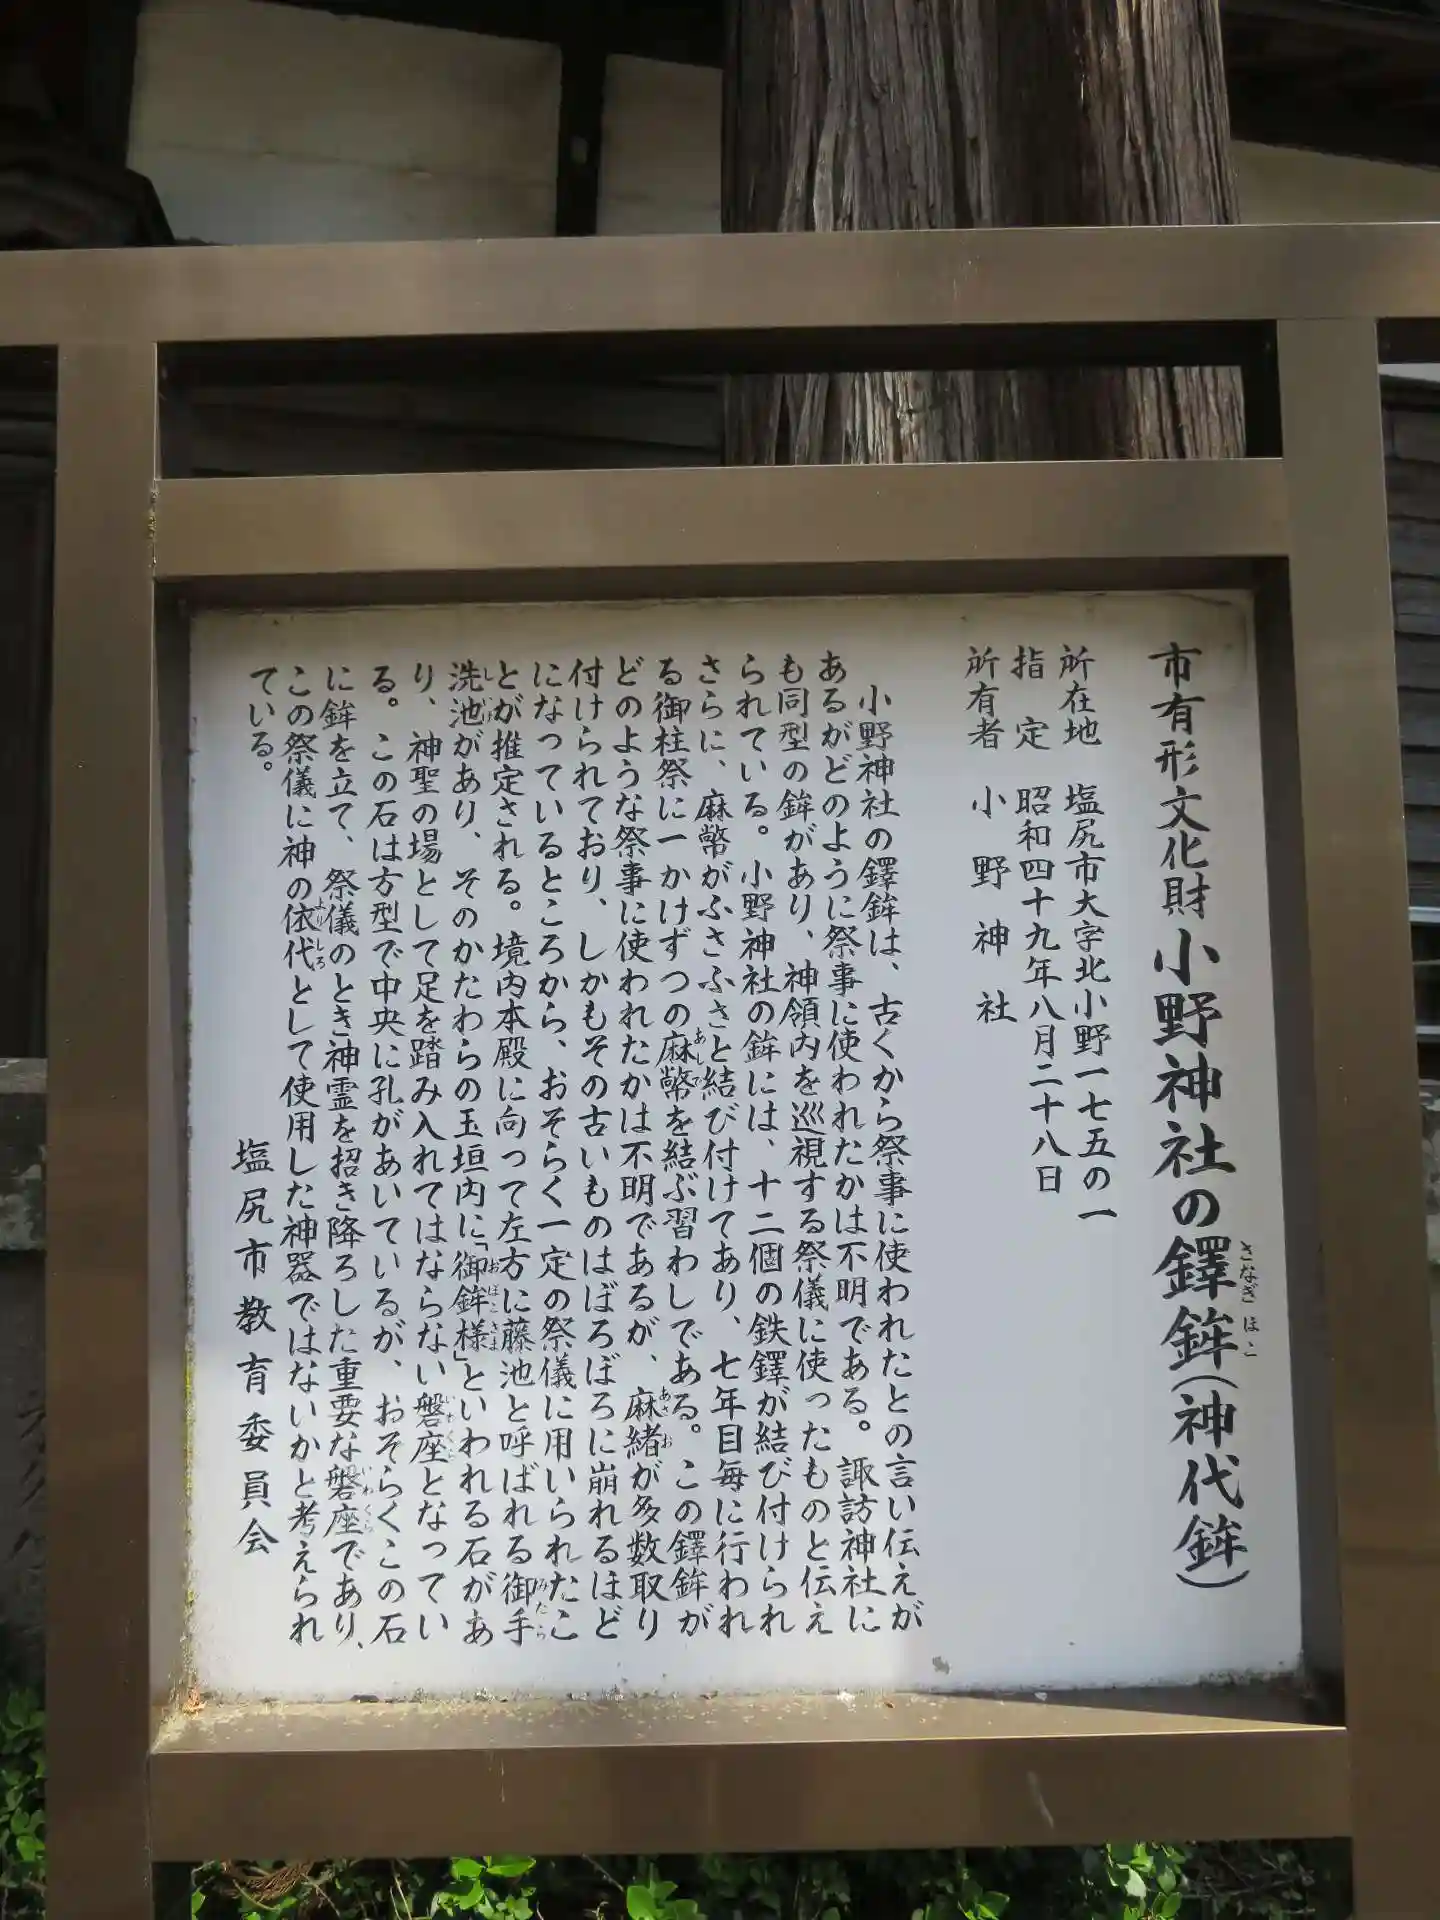 市有形文化財 小野神社の鐸鉾(神代鉾)
所在地 塩尻市大字北小野一七五の一
指定 昭和四十九年八月二十八日
所有者 小野神社
小野神社の鐸鉾は、古くから祭事に使われたとの言い伝えが
あるがどのように祭事に使われたかは不明である。諏訪神社に
も同型の鉾があり、神領内を巡視する祭儀に使ったものと伝え
られている。小野神社の鉾には、十二個の鉄鐸が結び付けられ
さらに、麻幣がふさふさと結び付けてあり、七年目毎に行われ
る御柱祭に一かけずつの麻幣を結ぶ習わしである。この鐸鉾が
どのような祭事に使われたかは不明であるが、麻緒が多数取り
付けられており、しかもその古いものはぼろぼろに崩れるほど
になっているところから、おそらく一定の祭儀に用いられたこ
とが推定される。境内本殿に向って左方に藤池と呼ばれる御手
洗池があり、そのかたわらの玉垣内に「御鉾様」といわれる石があ
り、神聖の場として足を踏み入れてはならない磐座となってい
る。この石は方型で中央に孔があいているが、おそらくこの石
に鉾を立て、祭儀のとき神霊を招き降ろした重要な磐座であり、
この祭儀に神の依代として使用した神器ではないかと考えられ
ている。
塩尻市教育委員会